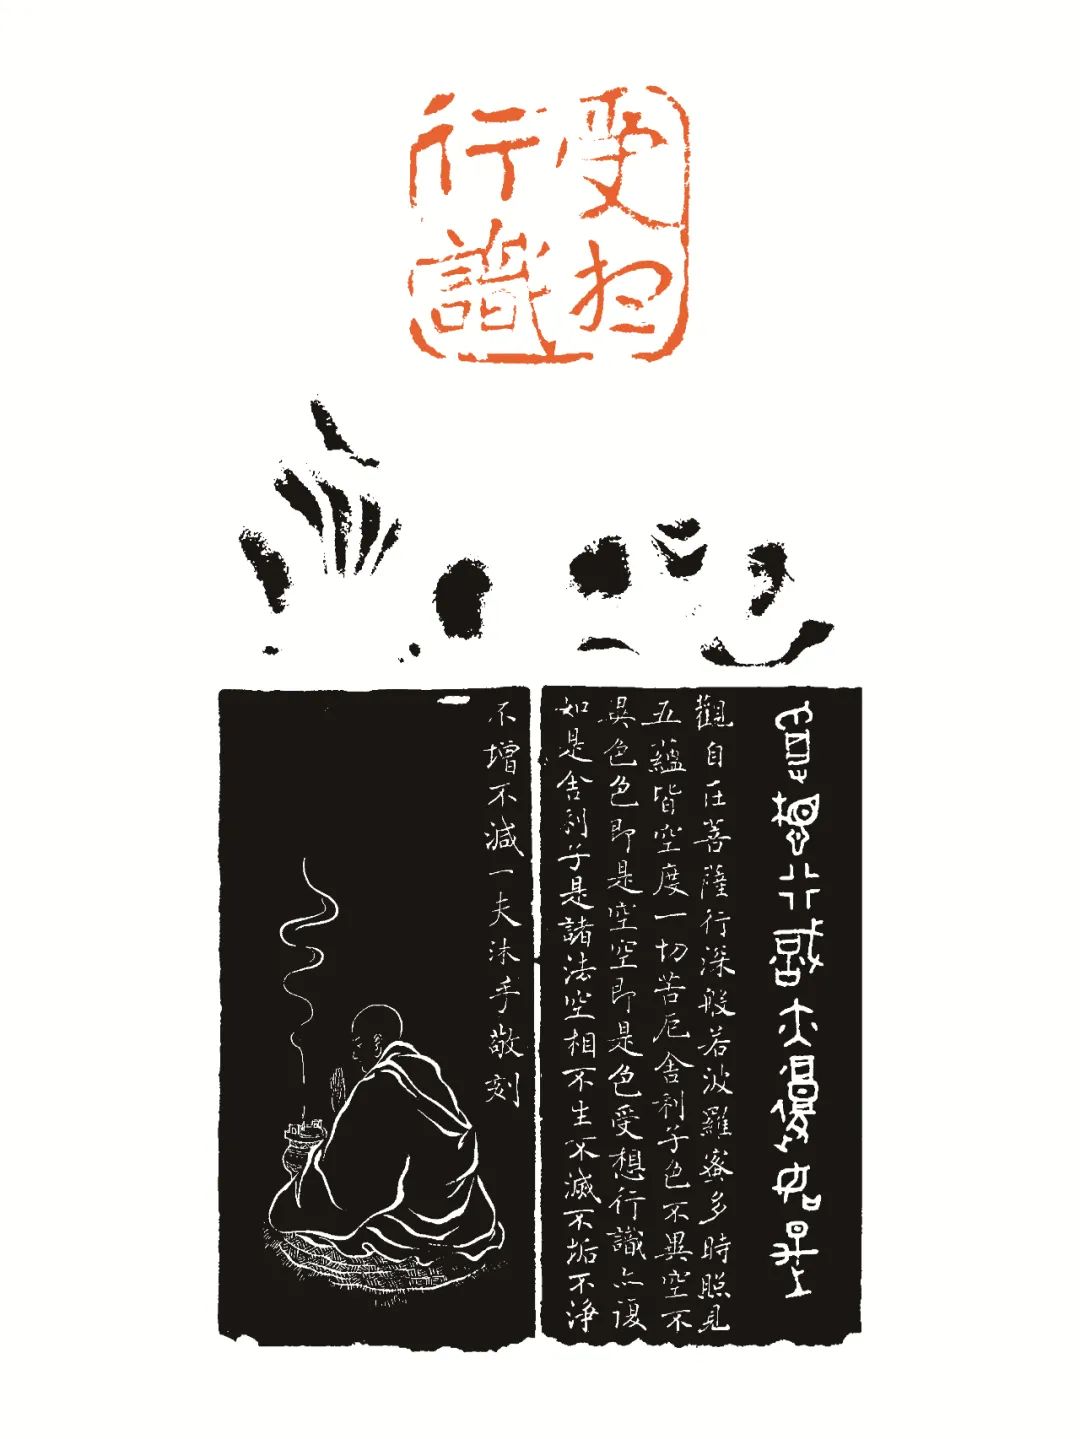 受想
行識
受想行識亦復如是
觀自在菩薩行深般若波羅蜜多時照見
五蘊皆空度一切苦厄舍利子色不異空不
異色色即是空空即是色受想行識亦復
如是舍利子是諸法空相不生不滅不垢不淨
不增不減一夫沐手敬刻